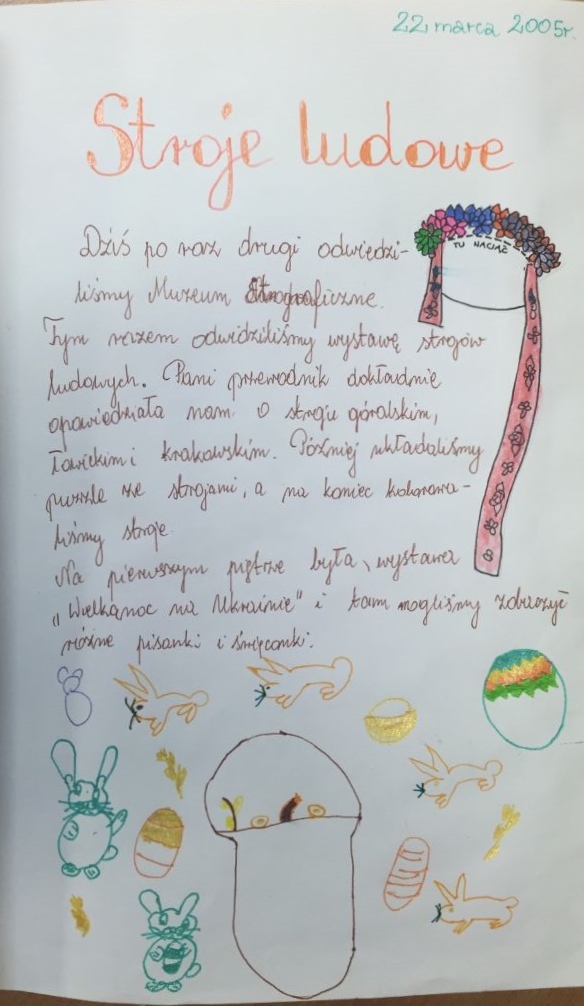 22 marca 2005r.
Stroje ludowe
Dziś po raz drugi odwiedzi-
liśmy Muzeum Etnograficzne.
TU NACIĄĆ
Tym razem odwidziliśmy wystawę strojów
ludowych. Pani przewodnik dokładnie
opowiedziała nam o stroju góralskim,
łowickim i krakowskim. Później układaliśmy
puzzle ze strojami, a na koniec kolorowa-
liśmy stroje.
Na pierwszym piętrze była wystawa
"Wielkanoc na Ukrainie" i tam mogliśmy zobaczyć
różne pisanki i święconki.